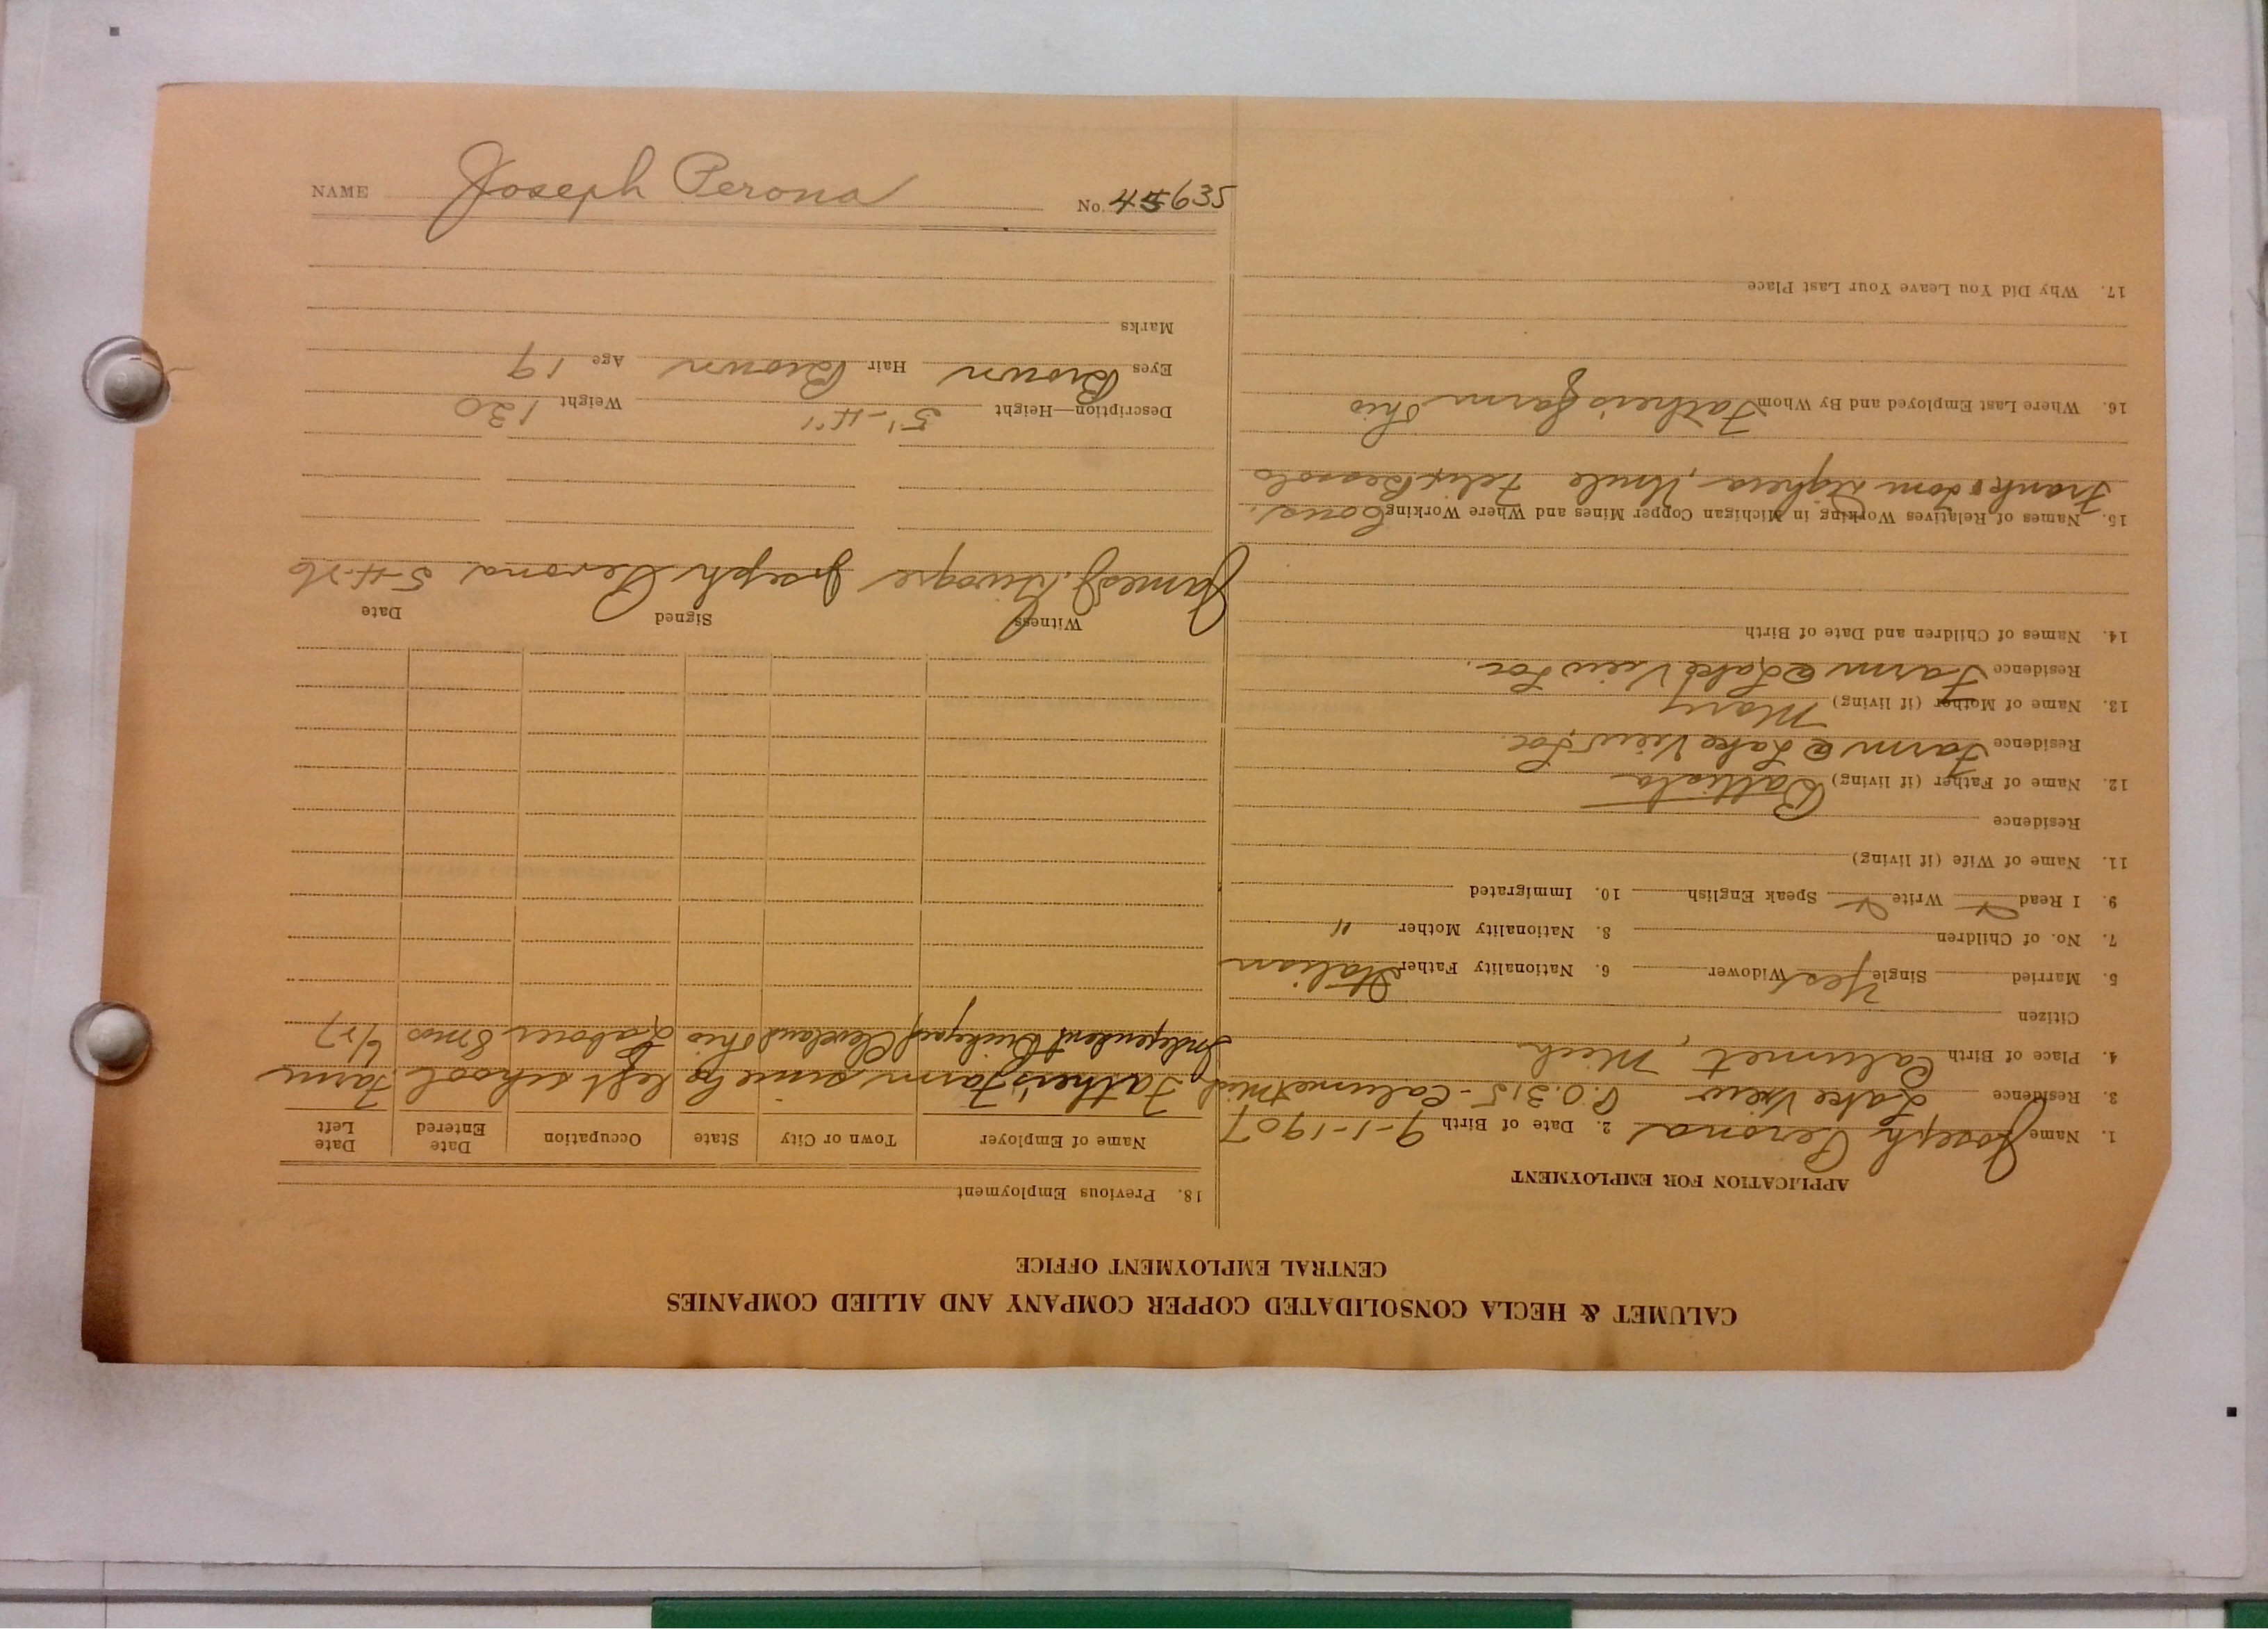 NAME Joseph Perona No. 45635
CALUMET & HECLA CONSOLIDATED COPPER COMPANY AND ALLIED COMPANIES
CENTRAL EMPLOYMENT OFFICE
APPLICATION FOR EMPLOYMENT
1. Name Joseph Perona 2. Date of Birth 9-1-1907
3. Residence Lake View P.O. 315 - Calumet Mich
4. Place of Birth Calumet, Mich.
Citizen
5. Married Single Yes Widower 6. Nationality Father Italian
7. No. of Children 8. Nationality Mother "
9. I Read Write Speak English 10. Immigrated
11. Name of Wife (if living)
Residence
12. Name of Father (if living) Battista
Residence Farm @ Lake View Loc.
13. Name of Mother (if living) Mary
Residence Farm @ Lake View Loc.
14. Names of Children and Date of Birth
15. Names of Relatives Working in Michigan Copper Mines and Where Working Cous.
Frank & Tom Vigheia, Uncle Felix Bessolo
16. Where Last Employed and By Whom Father's farm Ohio
17. Why Did You Leave Your Last Place
18. Previous Employment
Name of Employer Town or City State Occupation Date Entered Date Left
Father's Farm since he left school Farm
Independent Brickyard Cleveland Ohio Laborer 8 mos 6/27
Witness Signed Date
James J. Joseph Perona 5-4-26
Description—Height 5'-4" Weight 120
Eyes Brown Hair Brown Age 19
Marks